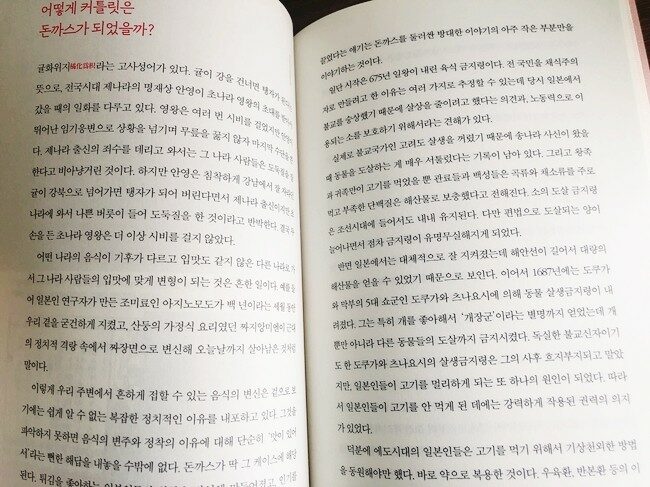 어떻게 커틀릿은
돈까스가 되었을까?
귤화위지橘化爲枳라는 고사성어가 있다. 귤이 강을 건너면 탱자가 된다는
뜻으로, 전국시대 제나라의 명재상 안영이 초나라 영왕의 초대를
갔을 때의 일화를 다루고 있다. 영왕은 여러 번 시비를 걸었지만
뛰어난 임기응변으로 상황을 넘기며 무릎을 꿇지 않자 마지막 수단을
한다. 제나라 출신의 죄수를 데리고 와서는 그 나라 사람들은 도둑질을
한다고 비아냥거린 것이다. 하지만 안영은 침착하게 강남에서 잘 자라던
귤이 강북으로 넘어가면 탱자가 되어 버린다면서 제나라 출신이지만 초
나라에 와서 나쁜 버릇이 들어 도둑질을 한 것이라고 반박한다. 결국
손을 든 초나라 영왕은 더 이상 시비를 걸지 않았다.
어떤 나라의 음식이 기후가 다르고 입맛도 같지 않은 다른 나라로
서 그 나라 사람들의 입맛에 맞게 변형이 되는 것은 흔한 일이다. 예를 들
어 일본인 연구자가 만든 조미료인 아지노모도가 백 년이라는 세월 동안
우리 곁을 굳건하게 지켰고, 산둥의 가정식 요리였던 짜지앙미엔이 근대
의 정치적 격랑 속에서 짜장면으로 변신해 오늘날까지 살아남은 것처럼
말이다.
이렇게 우리 주변에서 흔하게 접할 수 있는 음식의 변신은 겉으로 보
기에는 쉽게 알 수 없는 복잡한 정치적인 이유를 내포하고 있다. 그것을
파악하지 못하면 음식의 변주와 정착의 이유에 대해 단순히 '맛이 있어
서'라는 뻔한 해답을 내놓을 수밖에 없다. 돈까스가 딱 그 케이스에 해당
된다. 튀김을 좋아하는 만들어졌고, 인기를
끌었다는 얘기는 돈까스를 둘러싼 방대한 이야기의 아주 작은 부분만을
이야기하는 것이다.
일단 시작은 675년 일왕이 내린 육식 금지령이다. 전 국민을 채식주의
자로 만들려고 한 이유는 여러 가지로 추정할 수 있는데 당시 일본에서
불교를 숭상했기 때문에 살생을 줄이려고 했다는 의견과, 노동력으로 이
용되는 소를 보호하기 위해서라는 견해가 있다.
실제로 불교국가인 고려도 살생을 꺼렸기 때문에 송나라 사신이 왔을
때 동물을 도살하는 게 매우 서툴렀다는 기록이 남아 있다. 그리고 왕족
과 귀족만이 고기를 먹었을 뿐 관료들과 백성들은 곡류와 채소류를 주로
먹고 부족한 단백질은 해산물로 보충했다고 전해진다. 소의 도살 금지령
은 조선시대에 들어서도 내내 유지된다. 다만 편법으로 도살되는 양이
늘어나면서 점차 금지령이 유명무실해지게 되었다.
반면 일본에서는 대체적으로 잘 지켜졌는데 해안선이 길어서 대량의
해산물을 얻을 수 있었기 때문으로 보인다. 이어서 1687년에는 도쿠가
와 막부의 5대 쇼군인 도쿠가와 츠나요시에 의해 동물 살생금지령이 내
려졌다. 그는 특히 개를 좋아해서 '개장군'이라는 별명까지 얻었는데 개
뿐만 아니라 다른 동물들의 도살까지 금지시켰다. 독실한 불교신자이기
도 한 도쿠가와 츠나요시의 살생금지령은 그의 사후 흐지부지되고 말았
지만, 일본인들이 고기를 멀리하게 되는 또 하나의 원인이 되었다. 따라
서 일본인들이 고기를 안 먹게 된 데에는 강력하게 작용된 권력의 의지
가 있었다.
덕분에 에도시대의 일본인들은 고기를 먹기 위해서 기상천외한 방법
을 동원해야만 했다. 바로 약으로 복용한 것이다. 우육환, 반본환 등의 이